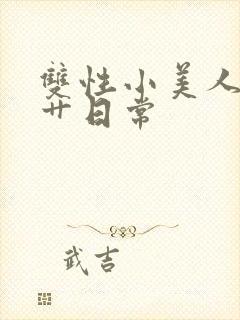 雙性小美人
艹日常
武吉